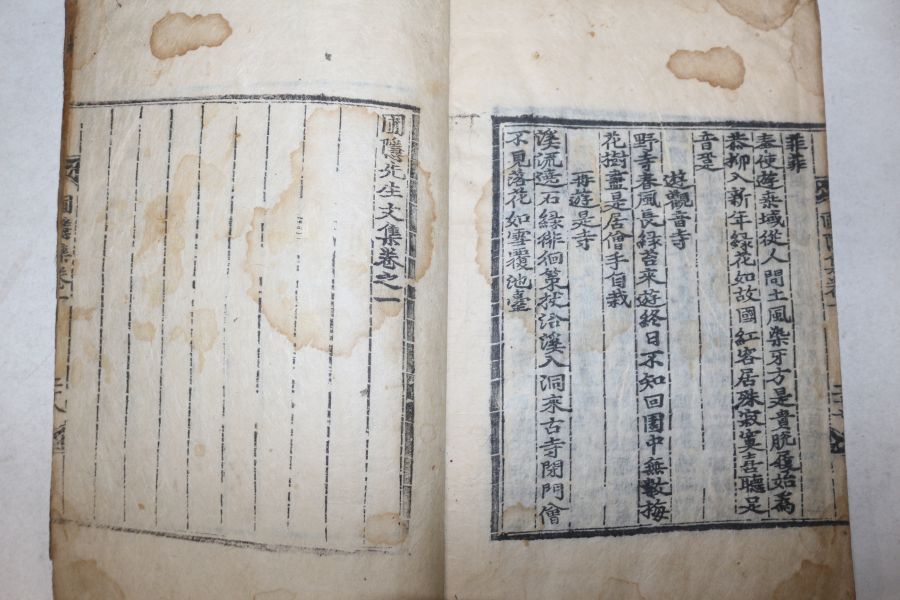 菲菲
奉使遊桑域從人問土風染牙方是貴脫履始爲
恭柳入新年綠花如故國紅客居殊寂寞喜聽足
音跫
遊觀音寺
野寺春風長綠苔來遊終日不知回園中無數梅
花樹盡是居僧手自栽
再遊是寺
溪流遶石綠徘徊策杖沿溪入洞來古寺閉門僧
不見落花如雪覆池臺
圃隱先生文集卷之一
圃隱集卷一